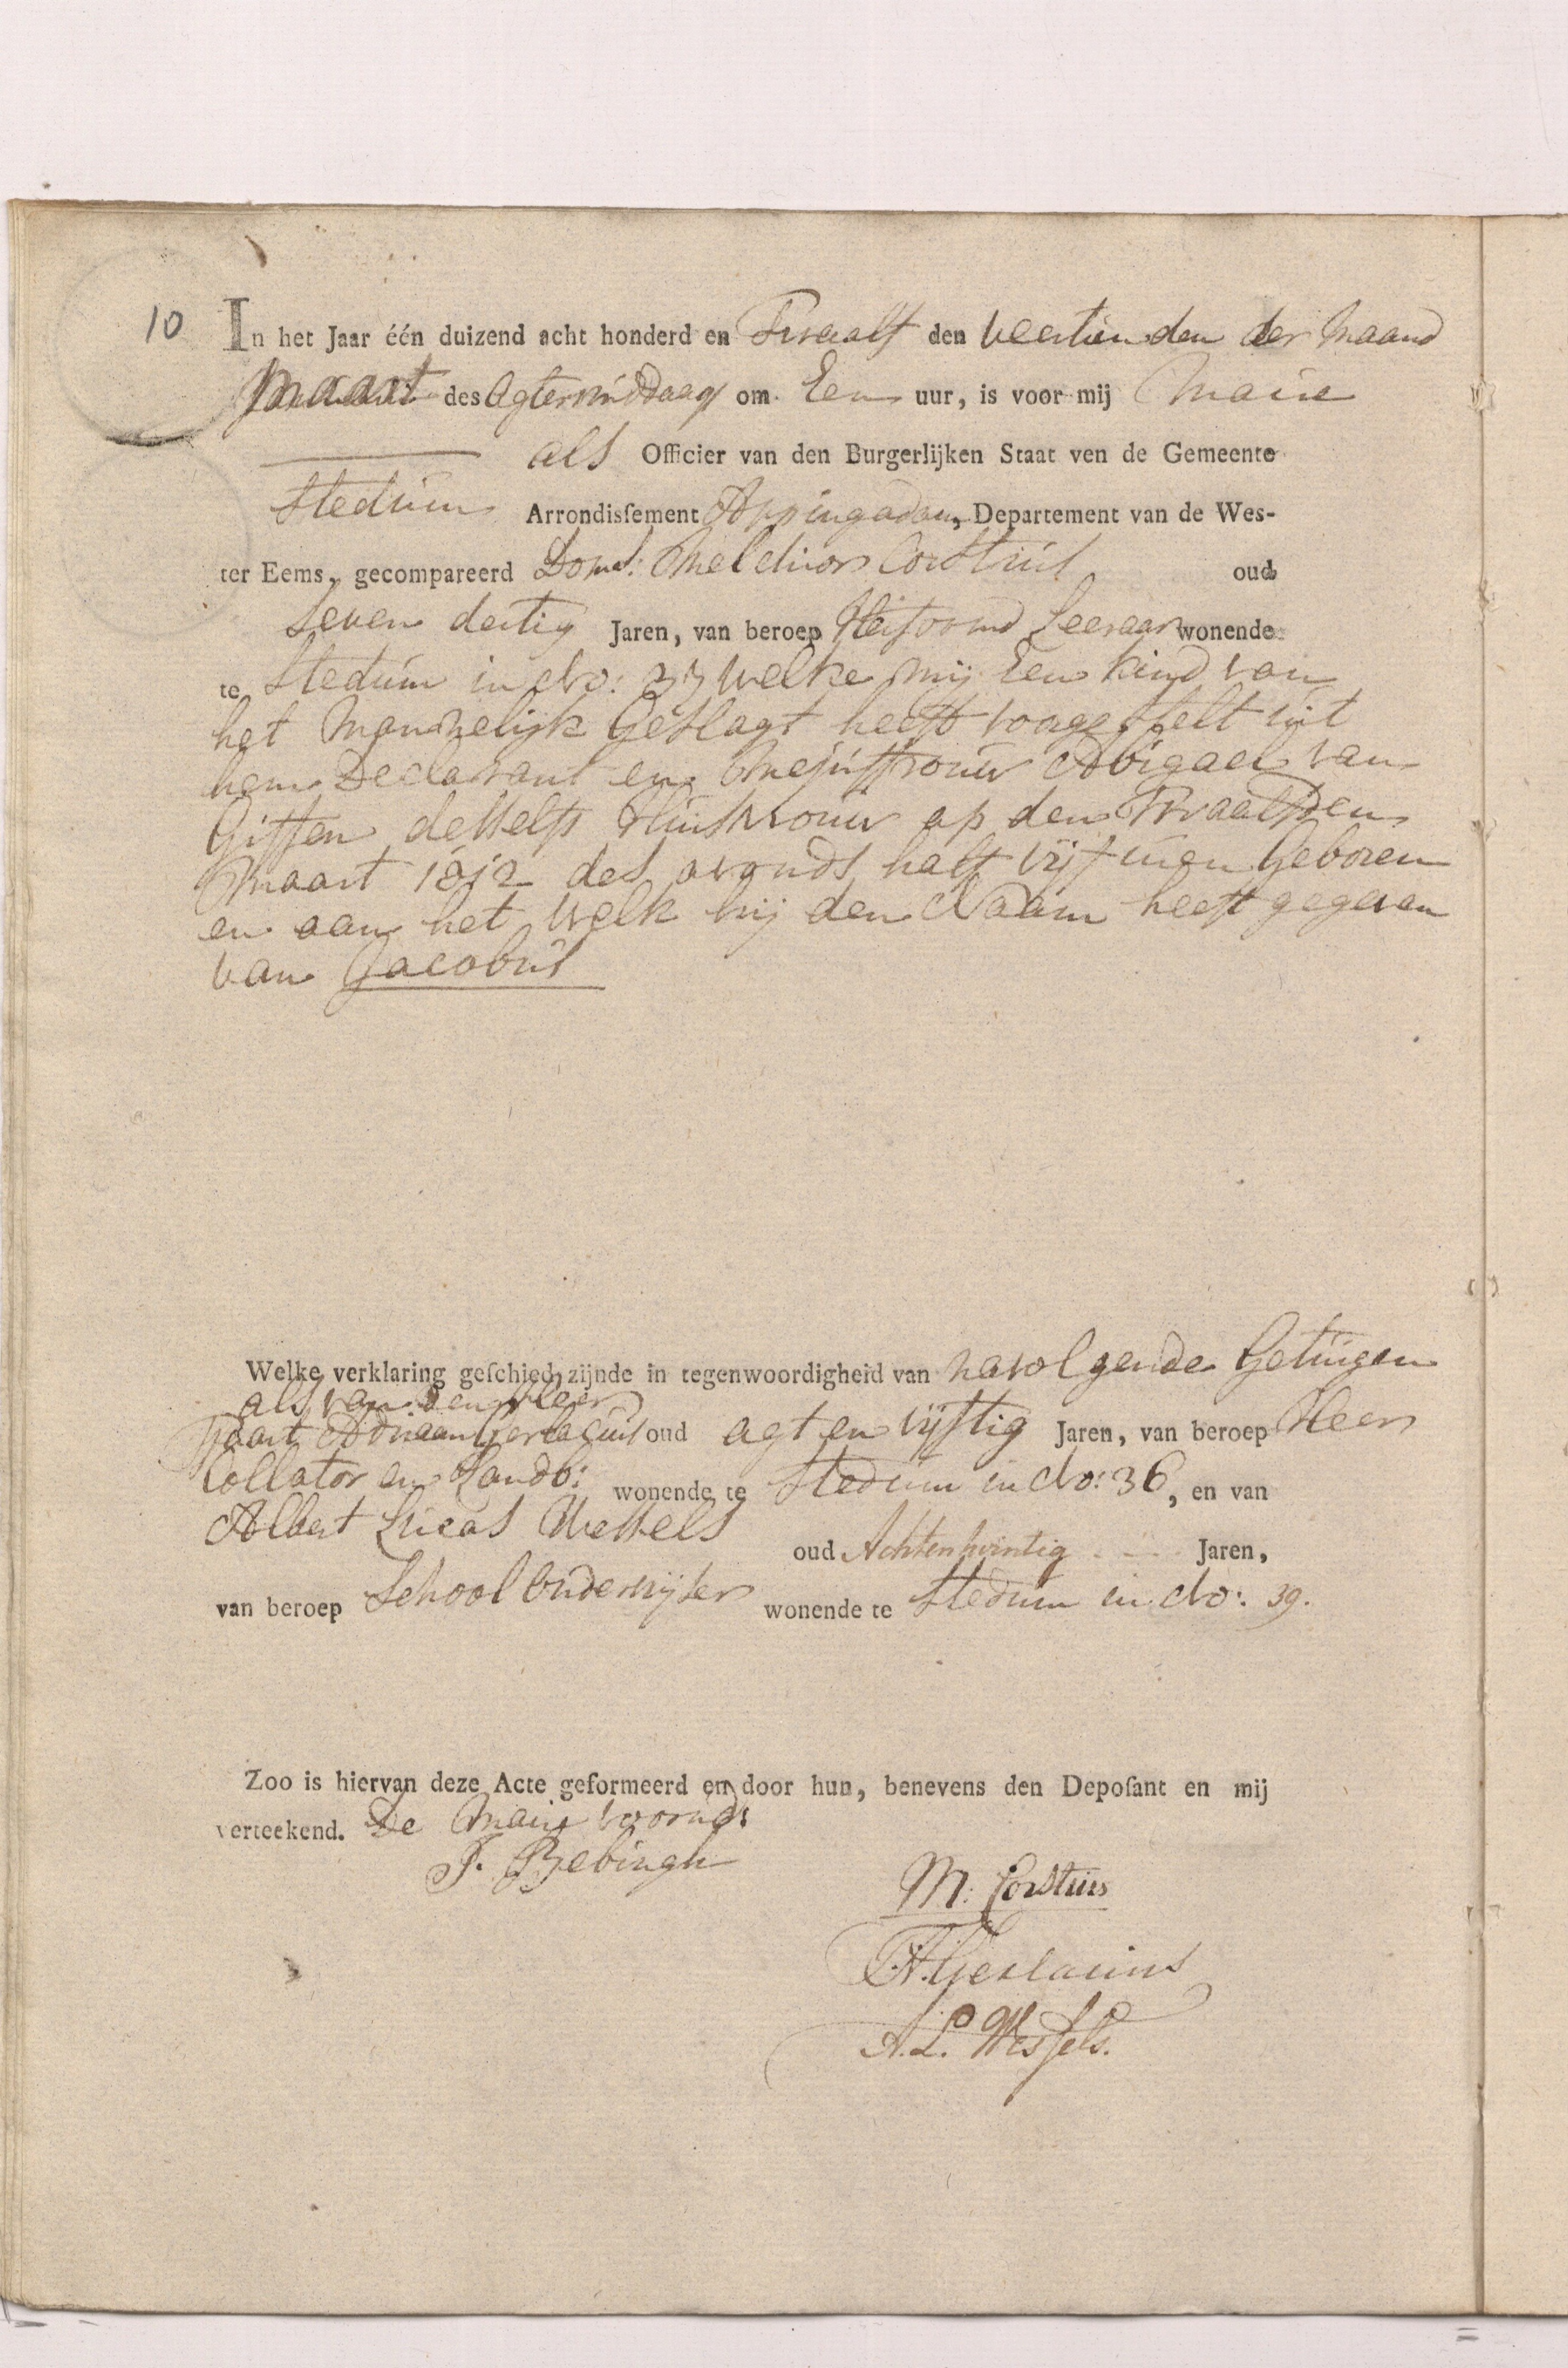 10
In het Jaar één duizend acht honderd en Twaalf den veertienden der Maand
Maart des Agtermiddaags om Een uur, is voor mij Maire
als Officier van den Burgerlijken Staat ven de Gemeente
Stedum Arrondisſement Appingadam, Departement van de Wes-
ter Eems, gecompareerd Dom: Melchior Corstius oud
Seven dertig Jaren, van beroep Hersormd Leeraar wonende
te Stedum in No: welke mij Een kind van
het Mannelijk Geslagt heeft voorgestelt uit
hem Declarant en Mejuffrouw Abigael van
Giffen desselfs Huisvrouw op den Twaalfden
Maart 1812 des avonds half vijf uren Geboren
en aan het welk hij den Naam heeft gegeven
van Jacobus
Welke verklaring geſchied zijnde in tegenwoordigheid van navolgende Getuigen
als van den Heer
Adriaan Gerlacius oud agt en vijftig Jaren, van beroep Heer
Collator en Landb: wonende te Stedum in No: 36, en van
Albert Lucas Wessels
oud Achtentwintig Jaren,
van beroep School Onderwijser wonende te Stedum in No: 39.
Zoo is hiervan deze Acte geformeerd en door hun, benevens den Depoſant en mij
verteekend. De Maire voornd:
F. Bebingh
M: Corstius
A. Gerlacius
A. L. Wesſels.